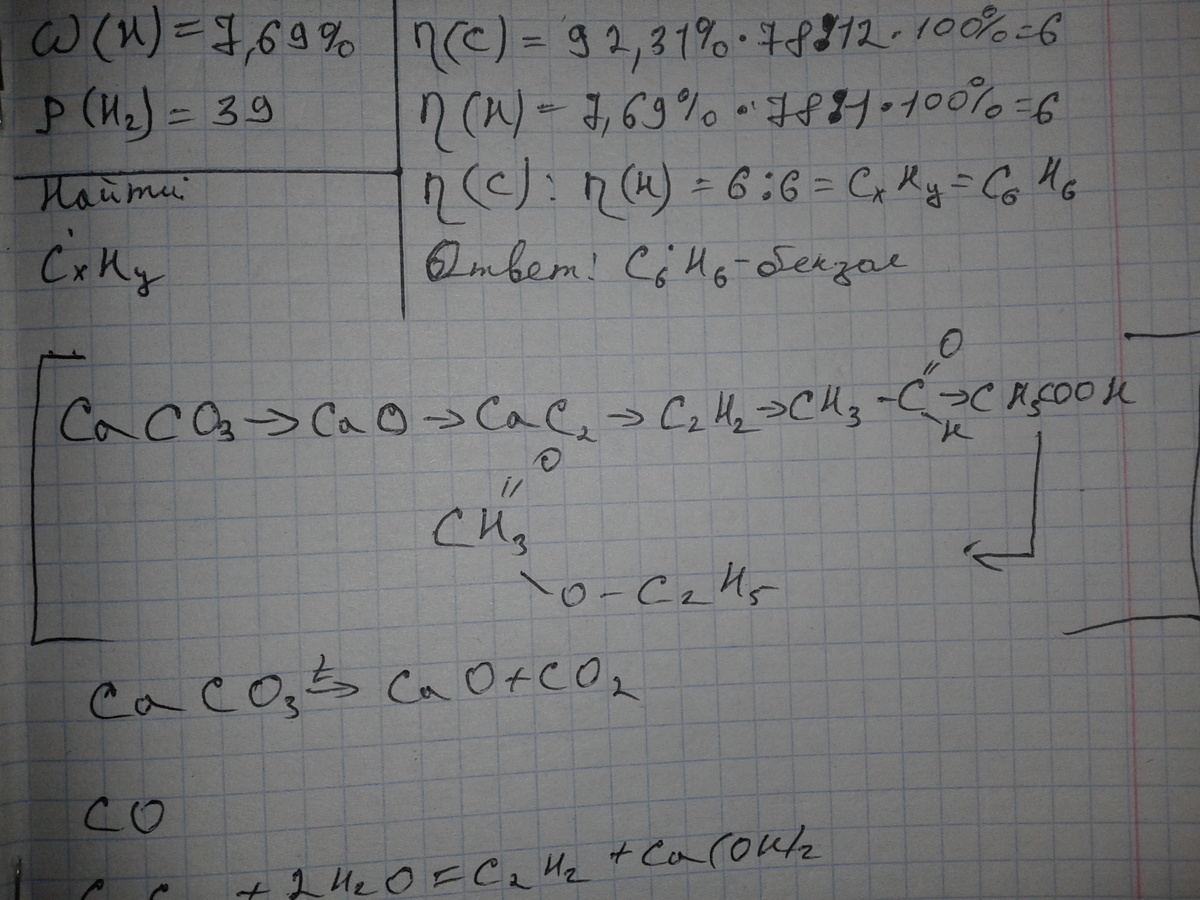 ω(H) = 7,69%
P(H₂) = 39
Найти:
CₓHᵧ
η(C) = 92,31% · 78:12 · 100% = 6
η(H) = 7,69% · 78:1 · 100% = 6
η(C) : η(H) = 6:6 = CₓHᵧ = C₆H₆
Ответ: C₆H₆ - бензол
CaCO₃ → CaO → CaC₂ → C₂H₂ → CH₃ - C → CH₃COOH
O
H
O
CH₃
O - C₂H₅
CaCO₃ t → CaO + CO₂
CO
+ 2H₂O = C₂H₂ + Ca(OH)₂